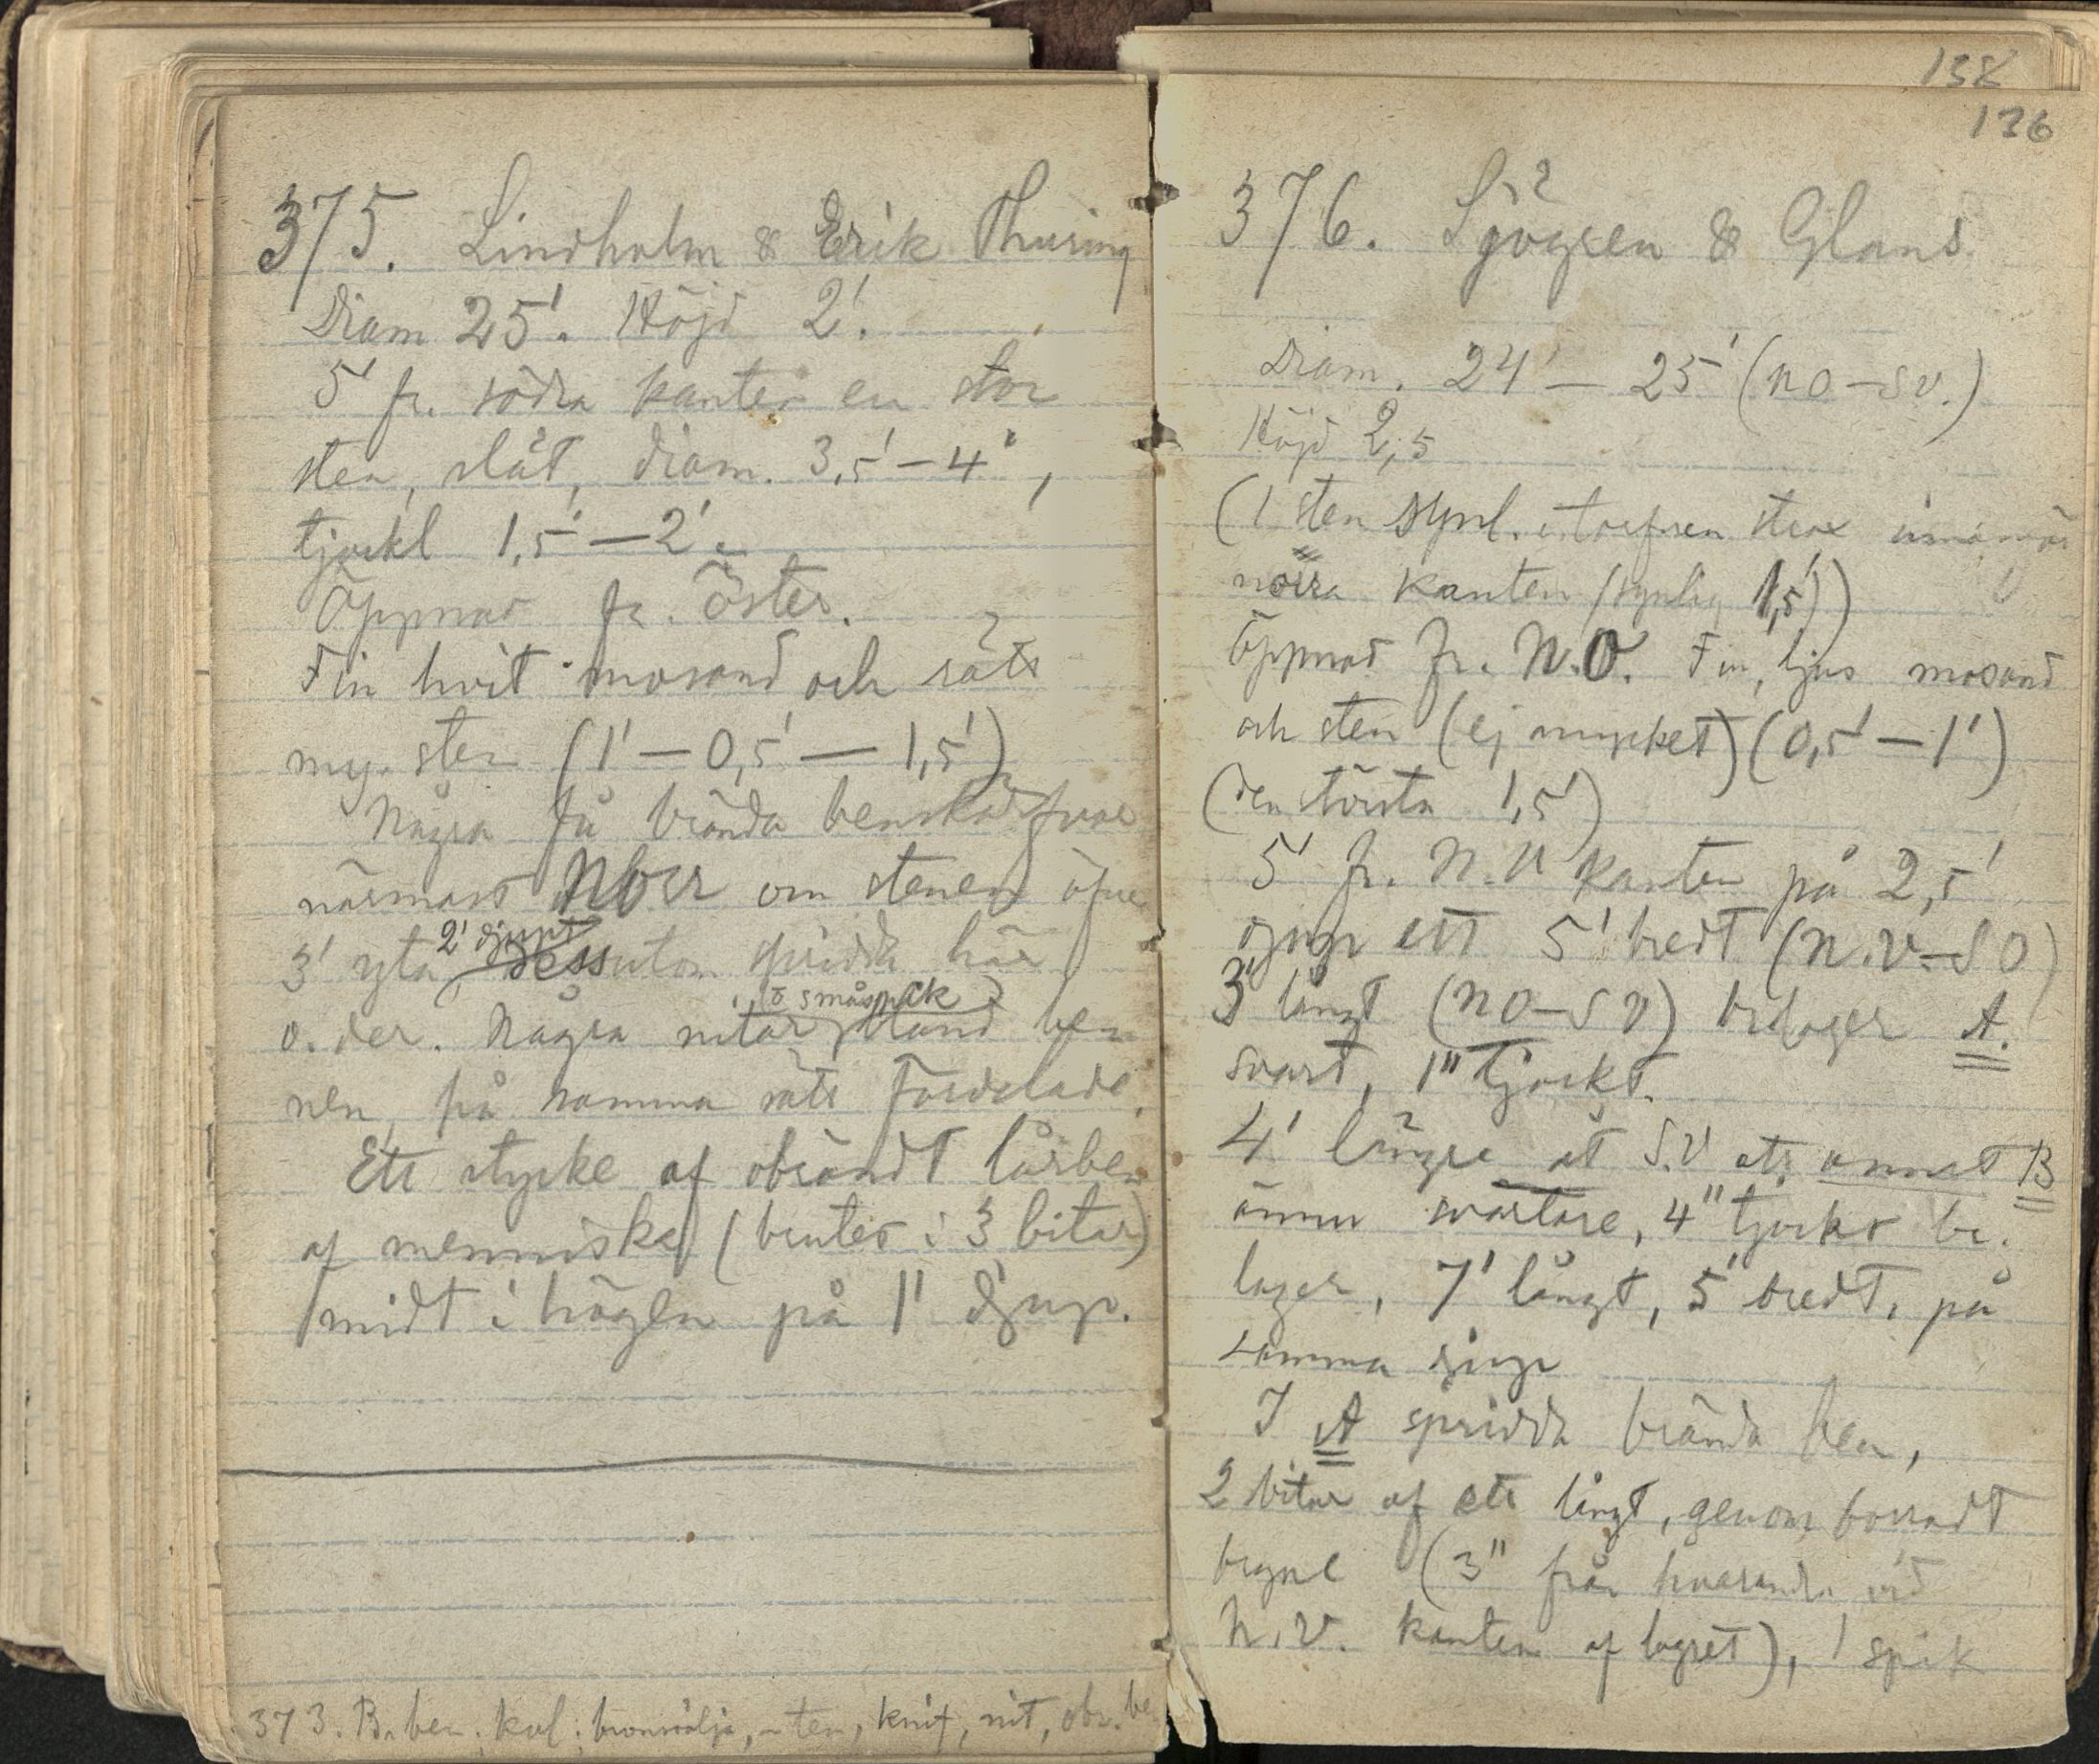 375. Lindholm & Erik Thuring
Diam 25'. Höjd 2'.
5' fr. södra kanten en stor
sten, slät, diam. 3,5'–4',
tjockl 1,5'–2'.
Öppnad fr. Öster.
Fin hvit mosand och rätt
my. sten (1'–0,5'–1,5')
Några få brända benskärfvor
närmast Norr om stenen öfver
2' djupt
3' yta, dessutom spridda här
o småspik
o. der. Några nitar bland be-
nen, på samma sätt fördelade.
Ett stycke af obrändt lårben
af menniska (brutet i 3 bitar)
midt i högen på 1' djup.
373. Br. ben. kol: bronssölja, ten, knif, nit, obr. be
138
136
376. Sjögren & Glans
Diam. 24'–25' (NO–SV.)
Höjd 2,5
(1 sten synl. i torfven strax
norra kanten (synlig 1,5'))
Öppnad fr. N.O. Fin, ljus mosand
och sten (ej mycket) (0,5'–1')
(den största 1,5')
5' fr. N.V kanten på 2,5'
djup ett 5' bredt (N.V–SO)
3' långt (NO–SV) br.lager A.
svart, 1" tjockt.
4' längre åt S.V ett annat B
ännu svartare, 4" tjockt br.
lager, 7' långt, 5' bredt, på
samma djup
I A spridda brända ben,
2 bitar af ett långt, genomborradt
bryne (3" från hvarandra vid
N.V. kanten af lagret), 1 spik